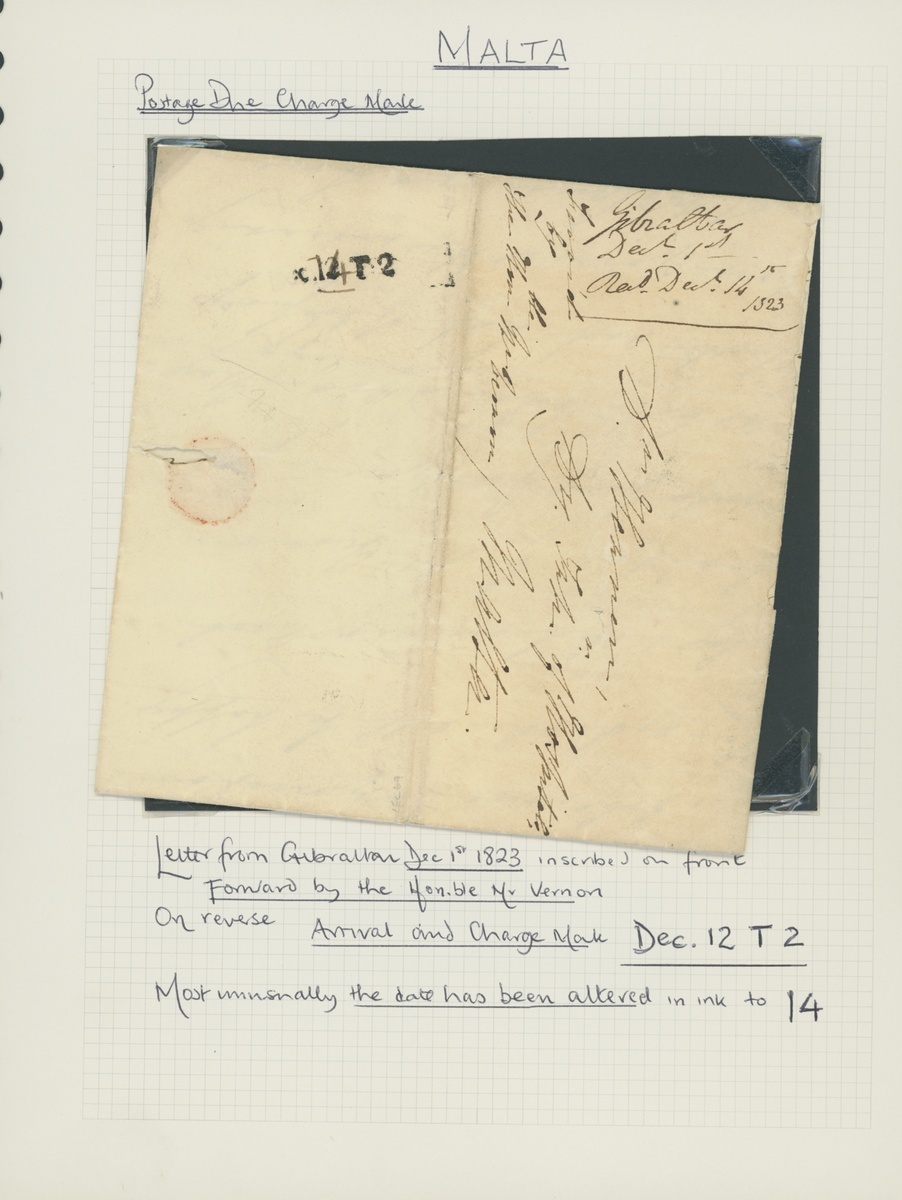 MALTA
Postage Due Charge Mark
c.12 T 2
14
Gibraltar
Dect. 1st
Recd. Dect. 14th
1823
by the
Malta.
Letter from Gibraltar Dec 1st 1823 inscribed on front
Forward by the Hon.ble Mr Vernon
On reverse Arrival and Charge Mark Dec. 12 T 2
Most unusually the date has been altered in ink to 14